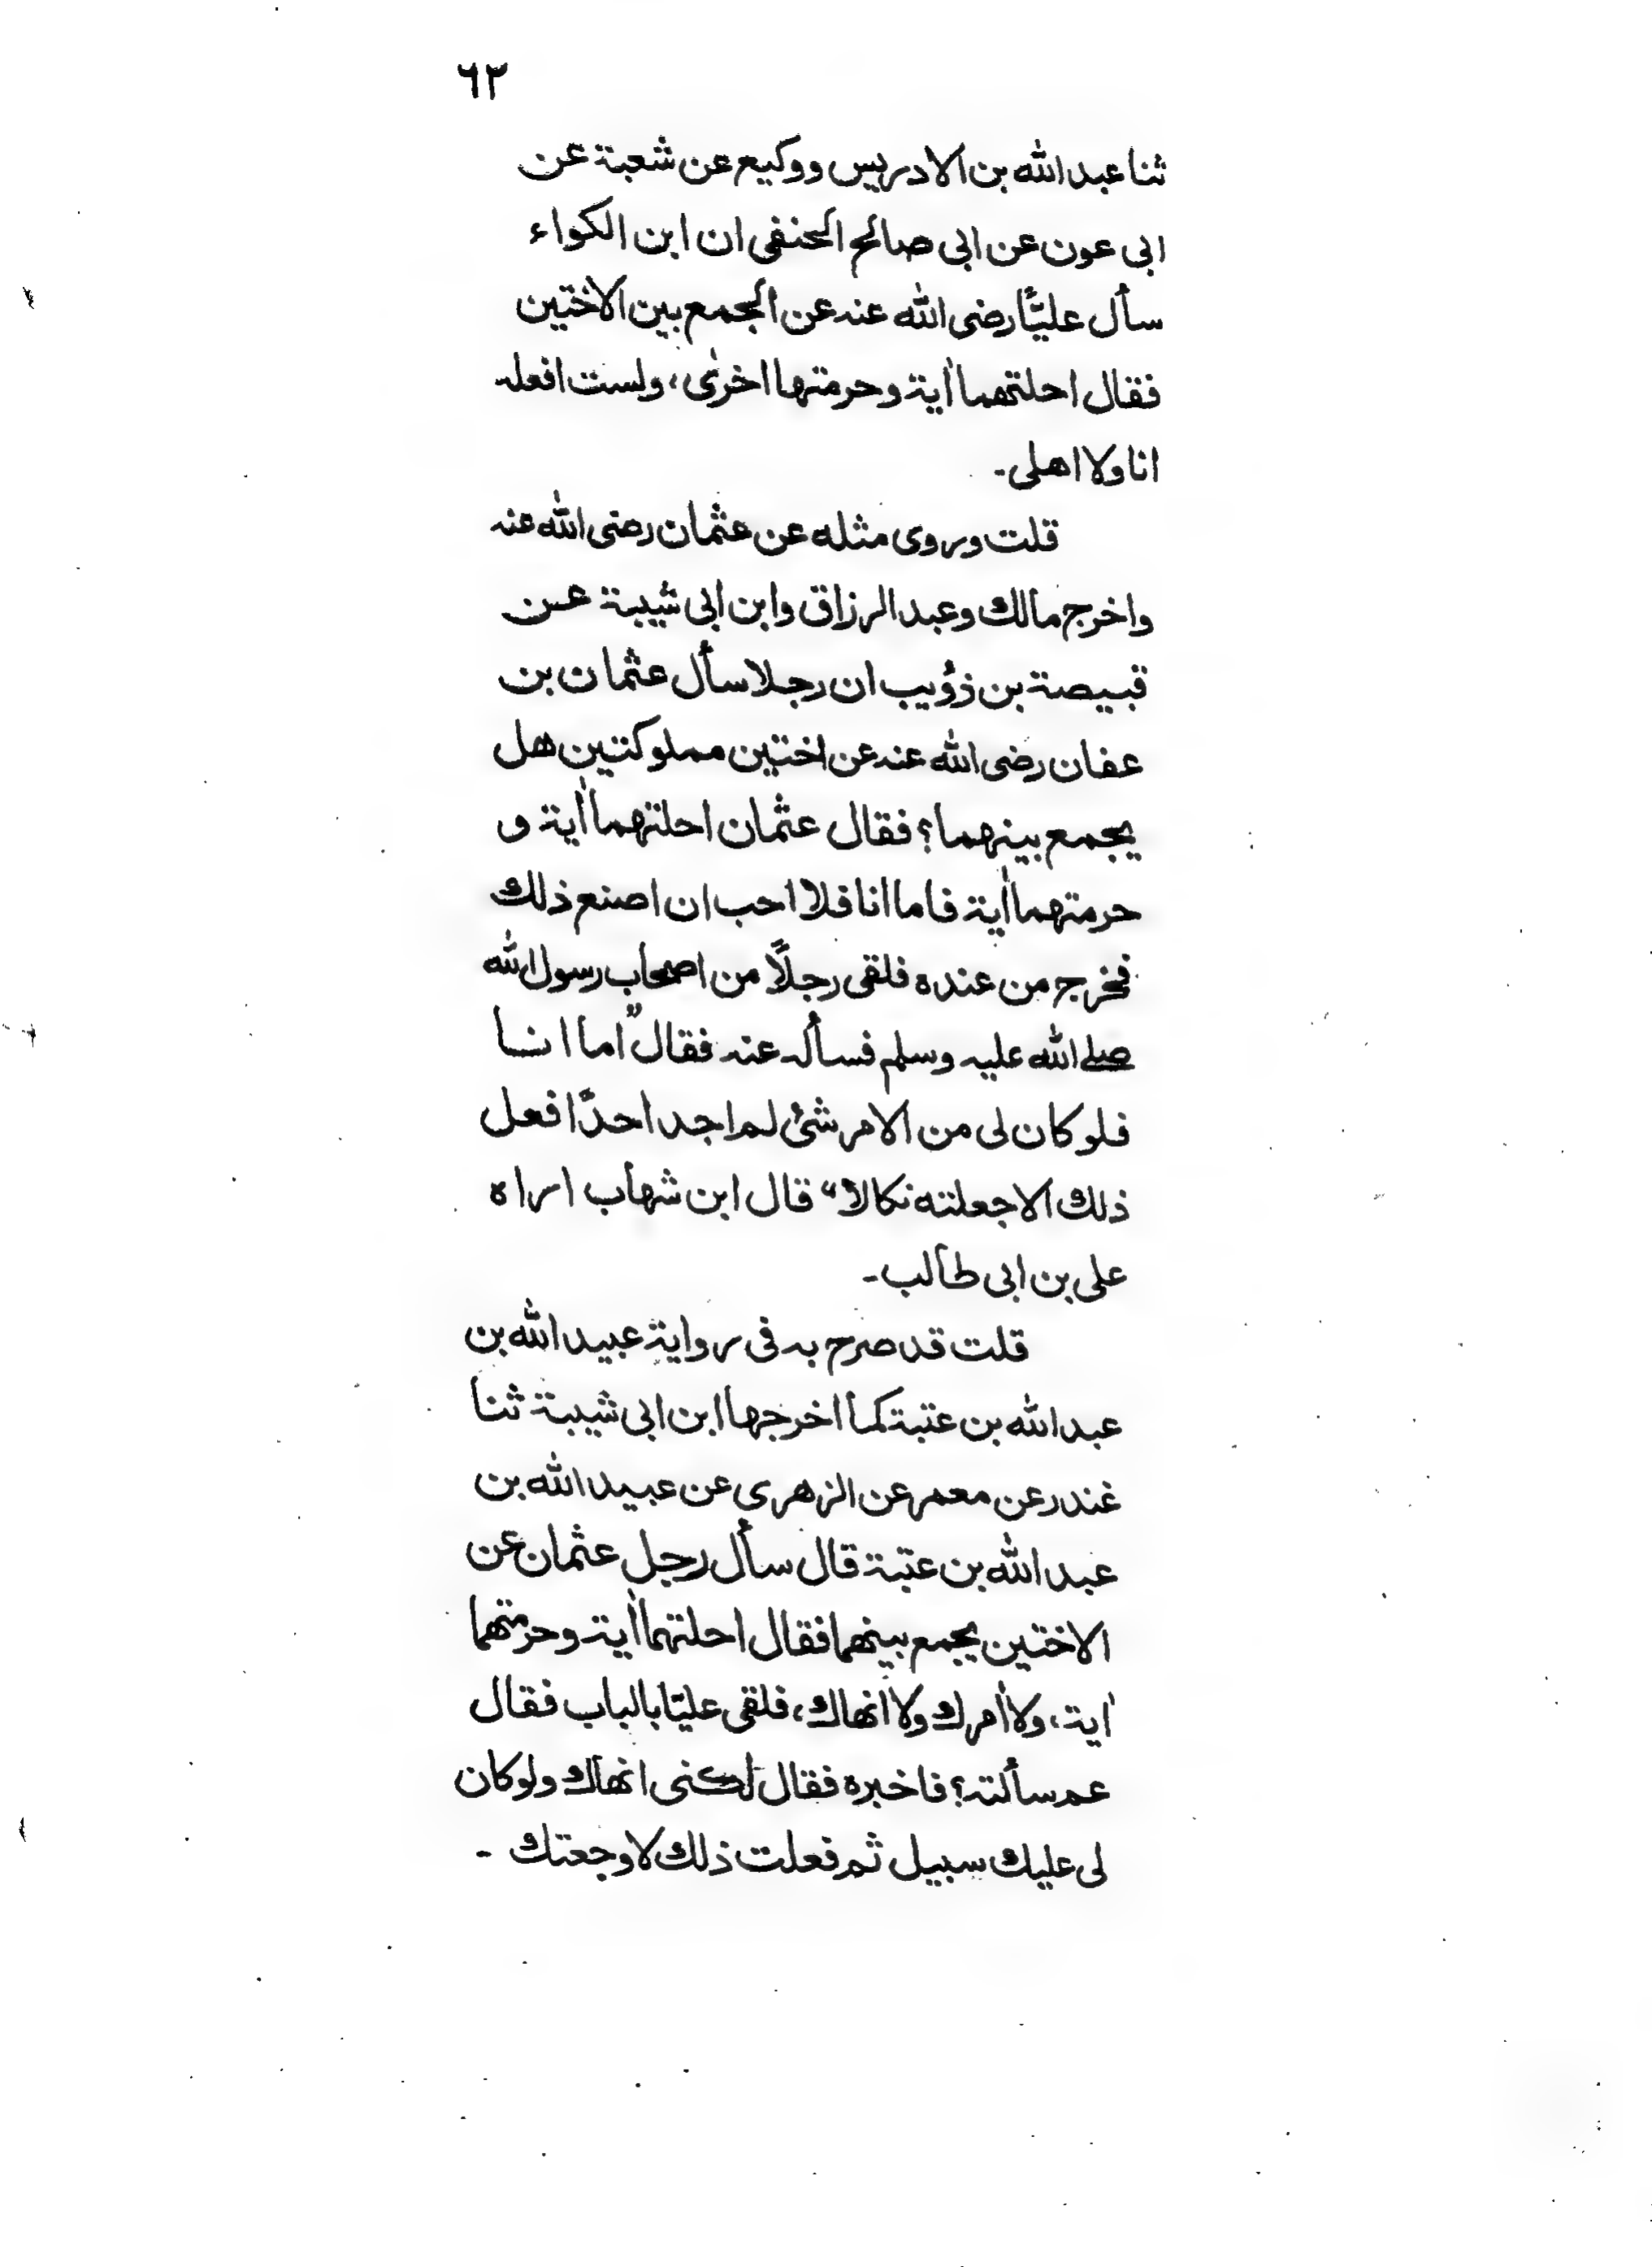 ٦٢
ثنا عبد الله بن الادريس ووكيع عن شعبة عن
ابى عون عن ابى صالح الحنفى ان ابن الكواء
سأل عليًّا رضى الله عنه عن الجمع بين الاختين
فقال احلتهما اٰية وحرمتها اخرٰى، ولست افعله
انا ولا اهلى۔
قلت وروى مثله عن عثمان رضى الله عنه
واخرج مالك وعبد الرزاق وابن ابى شيبة عن
قبيصة بن ذؤيب ان رجلا سأل عثمان بن
عفان رضى الله عنه عن اختين مملوكتين هل
يجمع بينهما؟ فقال عثمان احلتهما اٰية و
حرمتهما اٰية فاما انا فلا احب ان اصنع ذلك
فخرج من عنده فلقى رجلًا من اصحاب رسول الله
صلے الله عليه وسلم فسأله عنه فقال "اما انا
فلو كان لى من الامر شئ لم اجد احدًا فعل
ذلك الا جعلته نكالا" قال ابن شهاب اراه
على بن ابى طالب۔
قلت قد صرح به فى رواية عبيد الله بن
عبد الله بن عتبة كما اخرجها ابن ابى شيبة ثنا
غندر عن معمر عن الزهرى عن عبيد الله بن
عبد الله بن عتبة قال سأل رجل عثمان عن
الاختين يجمع بينهما فقال احلتهما اٰية وحرمتهما
اٰية، ولا اٰمرك ولا انهاك، فلقى عليّا بالباب فقال
عم سألته؟ فاخبره فقال لكنى انهاك ولو كان
لى عليك سبيل ثم فعلت ذلك لاوجعتك -